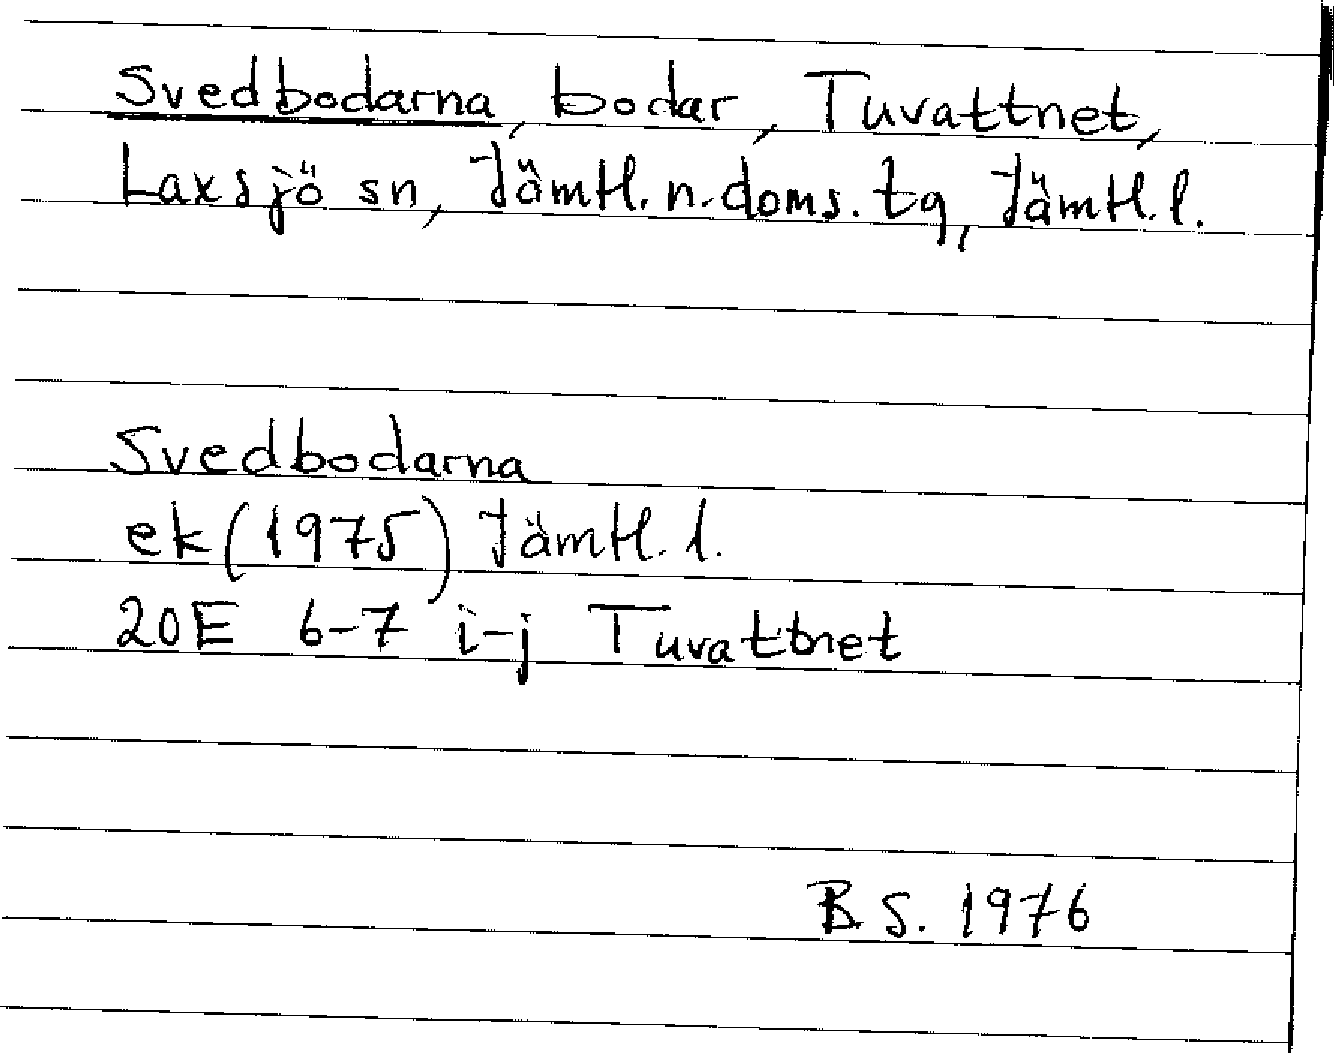 Svedbodarna, bodar, Tuvattnet,
Laxsjö sn, Jämtl. n. doms. tg, Jämtl. l.
Svedbodarna
ek (1975) Jämtl. l.
20E 6-7 i-j Tuvattnet
B S. 1976